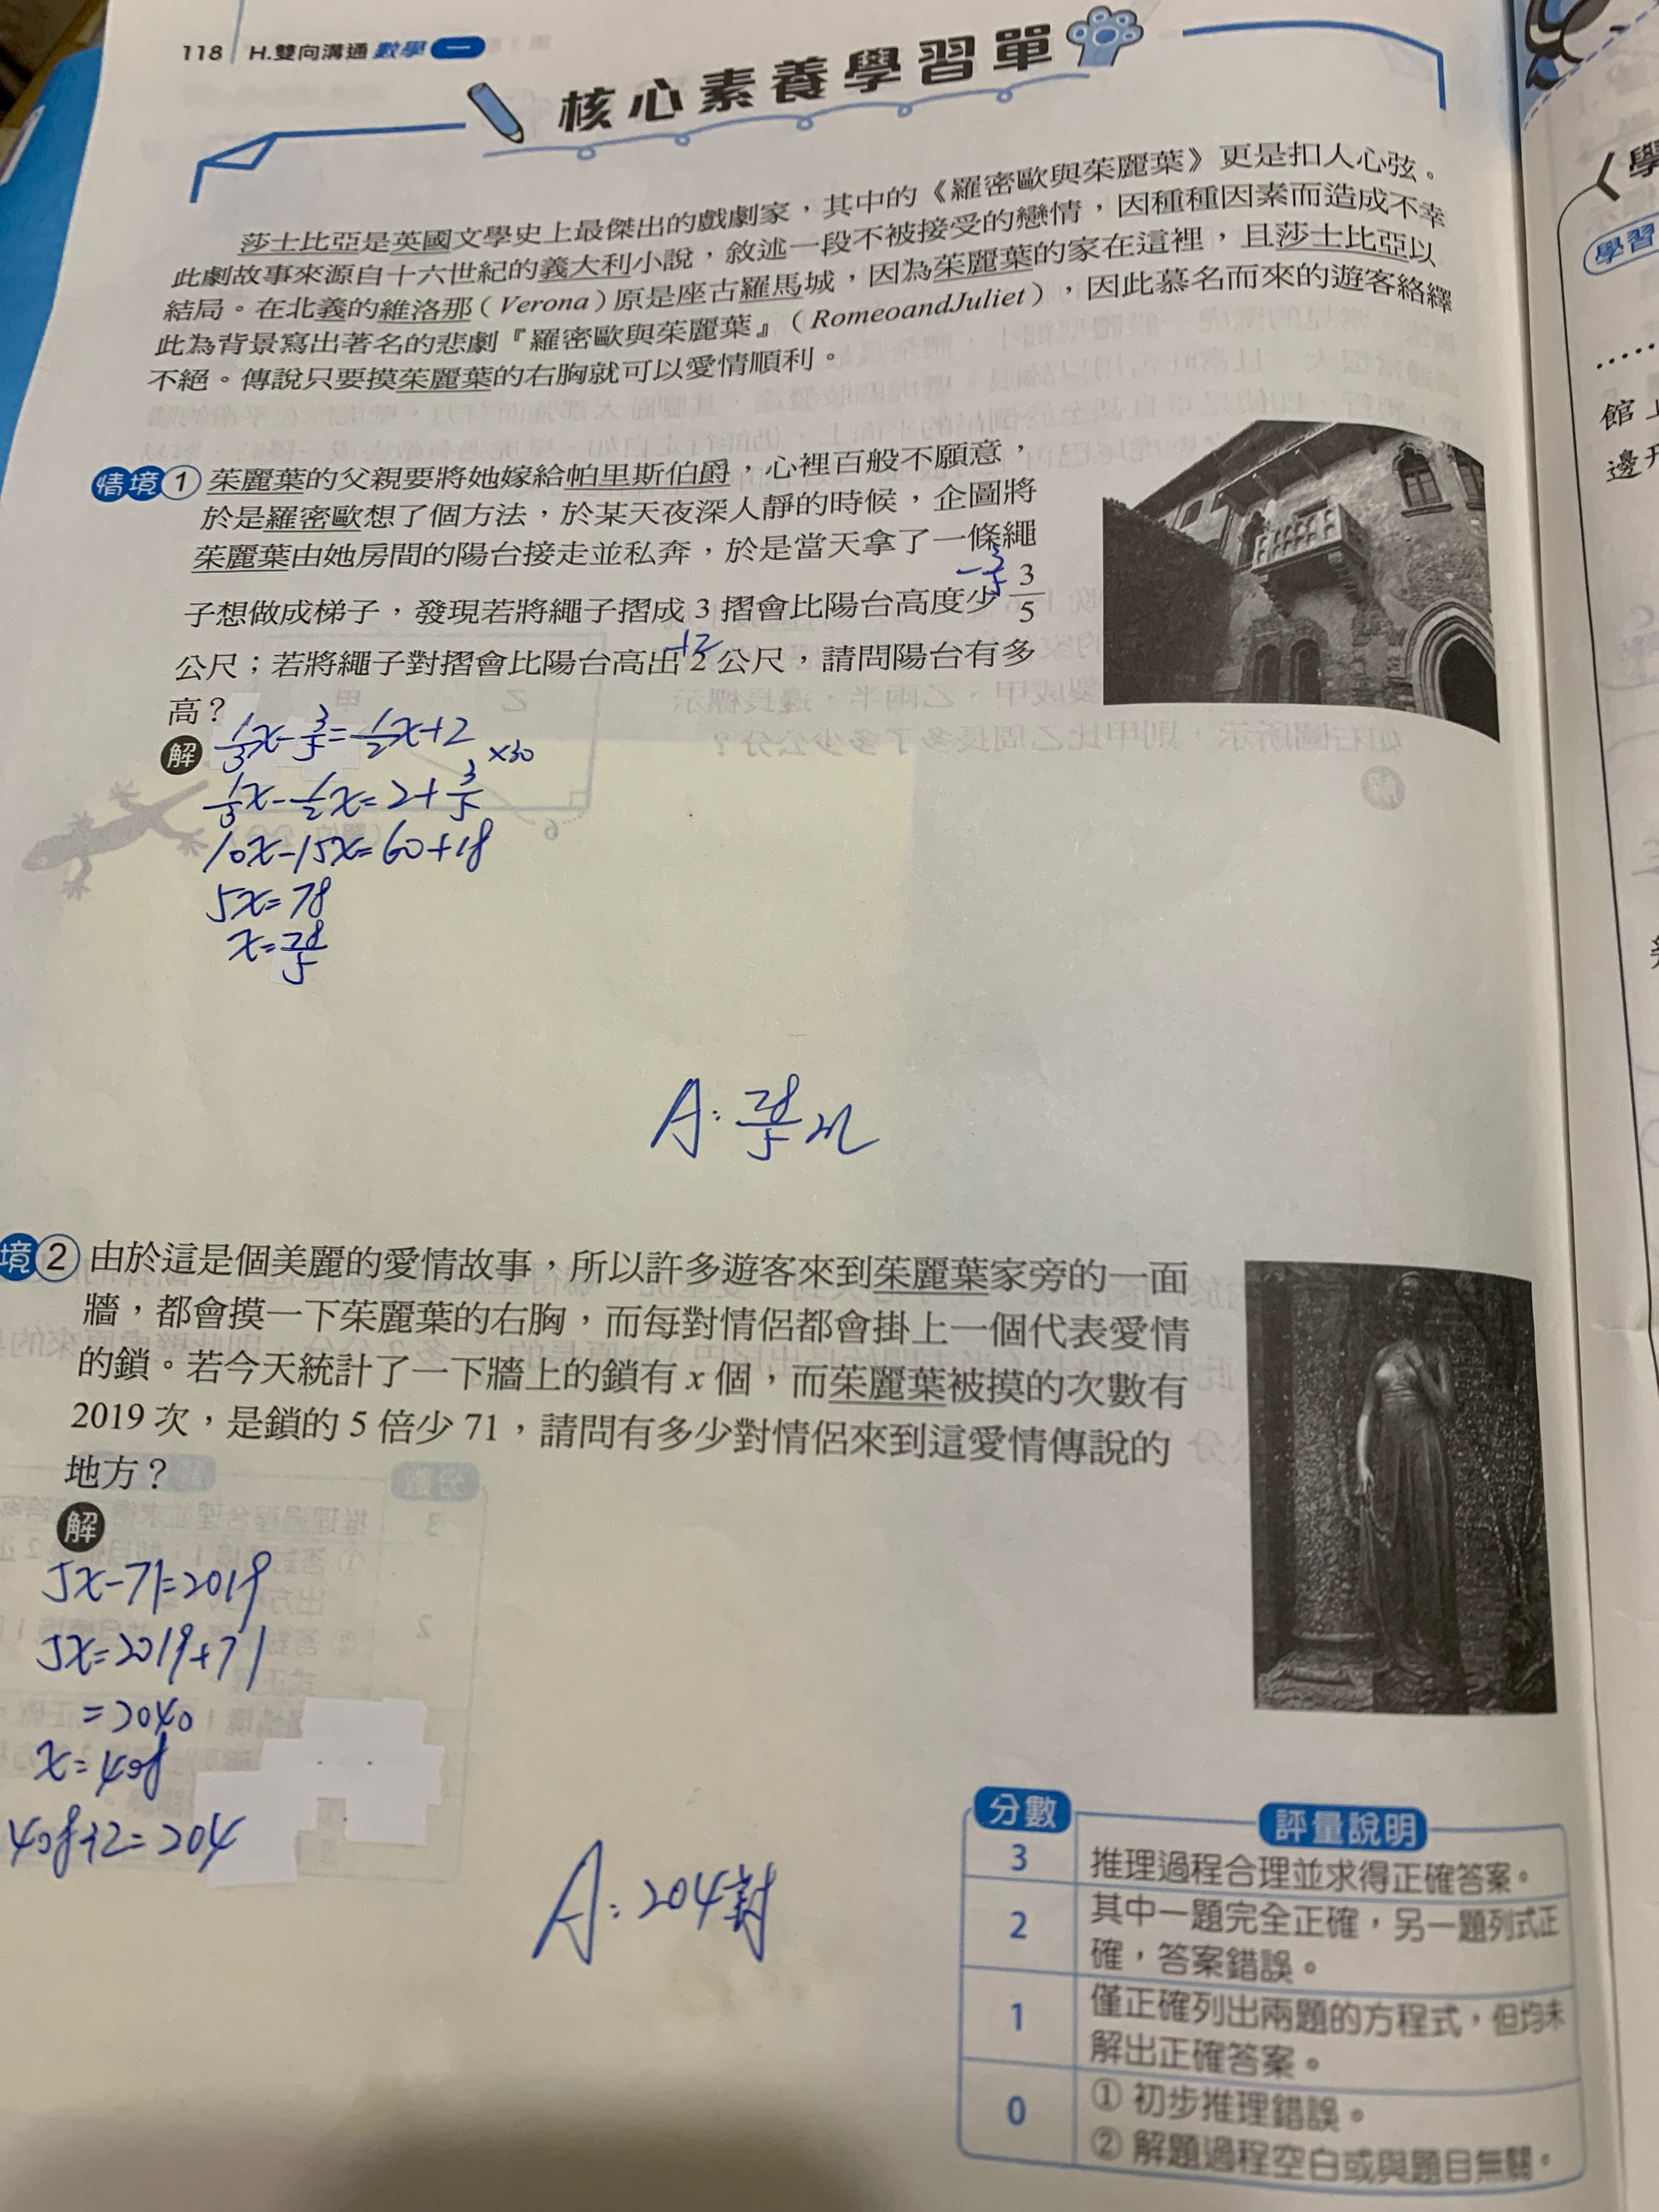 118 H.雙向溝通 數學 一
核心素養學習單
莎士比亞是英國文學史上最傑出的戲劇家，其中的《羅密歐與茱麗葉》更是扣人心弦。
此劇故事來源自十六世紀的義大利小說，敘述一段不被接受的戀情，因種種因素而造成不幸
結局。在北義的維洛那（Verona）原是座古羅馬城，因為茱麗葉的家在這裡，且莎士比亞以
此為背景寫出著名的悲劇『羅密歐與茱麗葉』（RomeoandJuliet），因此慕名而來的遊客絡繹
不絕。傳說只要摸茱麗葉的右胸就可以愛情順利。
情境 1 茱麗葉的父親要將她嫁給帕里斯伯爵，心裡百般不願意，
於是羅密歐想了個方法，於某天夜深人靜的時候，企圖將
茱麗葉由她房間的陽台接走並私奔，於是當天拿了一條繩
-3/5
子想做成梯子，發現若將繩子摺成 3 摺會比陽台高度少 3/5
+2
公尺；若將繩子對摺會比陽台高出 2 公尺，請問陽台有多
高？
解 1/3x-3/5=1/2x+2
×30
1/3x-1/2x=2+3/5
10x-15x=60+18
5x=78
x=78/5
A:78/5m
境 2 由於這是個美麗的愛情故事，所以許多遊客來到茱麗葉家旁的一面
牆，都會摸一下茱麗葉的右胸，而每對情侶都會掛上一個代表愛情
的鎖。若今天統計了一下牆上的鎖有 x 個，而茱麗葉被摸的次數有
2019 次，是鎖的 5 倍少 71，請問有多少對情侶來到這愛情傳說的
地方？
解
5x-71=2019
5x=2019+71
=2040
x=408
408÷2=204
A:204對
分數 評量說明
3 推理過程合理並求得正確答案。
2 其中一題完全正確，另一題列式正
確，答案錯誤。
1 僅正確列出兩題的方程式，但均未
解出正確答案。
0 ① 初步推理錯誤。
② 解題過程空白或與題目無關。
學
學習
館
邊